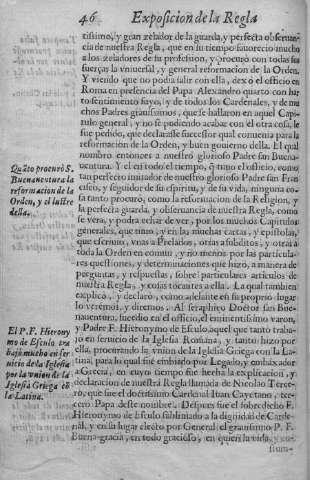 46 Exposicion de la Regla
tissimo, y gran zelador de la guarda, y perfecta obseruan
cia de nuestra Regla, que en su tiempo fauorecio mucho
a los zeladores de su profession, y procurò con todas sus
fuerças la vniuersal, y general reformacion de la Orden.
Y viendo que no podia salir con ella, dexò el officio en
Roma en presencia del Papa Alexandro quarto con har
to sentimiento suyo, y de todos los Cardenales, y de mu
chos Padres grauissimos, que se hallaron en aquel Capi
tulo general, y no se pudiendo acabar con èl otra cosa, le
fue pedido, que declarasse successor qual conuenia para la
reformacion de la Orden, y buen gouierno della. El qual
nombrò entonces a nuestro glorioso Padre san Buena-
uentura. Y èl en todo el tiempo, que tuuo el officio, como
tan perfecto imitador de nuestro glorioso Padre san Fran
cisco, y seguidor de su espiritu, y de su vida, ninguna co-
sa tanto procurò, como la reformacion de la Religion, y
la perfecta guarda, y obseruancia de nuestra Regla, como
se vido, y podra echar de ver, por los muchos Capitulos
generales, que tuuo, y en las muchas cartas, y epistolas,
que escriuio, vnas a Prelados, otras a subditos, y otras a
toda la Orden en comun, y no menos por las particula-
res questiones, y determinaciones que hizo, a manera de
preguntas, y respuestas, sobre particulares articulos de
nuestra Regla, y cosas tocantes a ella. La qual tambien
explicò, y declarò, como adelante en su proprio lugar
lo veremos, y diremos. Al Seraphico Doctor san Bue-
nauentura, sucedio en el officio, el eminentissimo varon,
y Padre F. Hieronymo de Esculo, aquel que tanto traba-
jò en seruicio de la Iglesia Romana, y tanto hizo por
ella, procurando la vnion de la Iglesia Griega con la La-
tina, para lo qual fue embiado por Legado, y embaxador
a Grecia, en cuyo tiempo fue hecha la explicacion, y
declaracion de nuestra Regla llamada de Nicolao Terce-
ro, que fue el doctissimo Cardenal Iuan Cayetano, ter-
cero Papa deste nombre. Despues fue el sobredicho F.
Hieronymo de Esculo sublimado a la dignidad de Carde-
nal, y en su lugar electo por General, el grauissimo P. F.
Buena-gracia, en todo gracioso, en quien la vida, y co-
Quãto procurò S.
Buenauentura la
reformacion de la
Orden, y el lustre
della.
El P. F. Hierony
mo de Esculo tra
bajò mucho en ser
uicio de la Iglesia
por la vnion de la
Iglesia Griega cõ
la Latina.